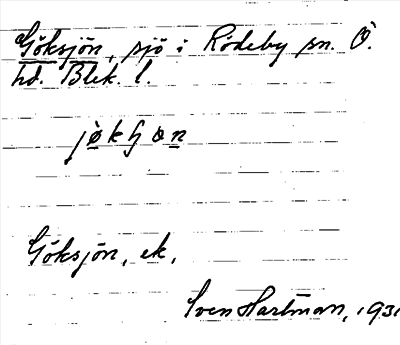 Göksjön, sjö i Rödeby sn. Ö.
hd. Blek. l.
jøkɧøn
Göksjön, ek,
Sven Hartman, 1931